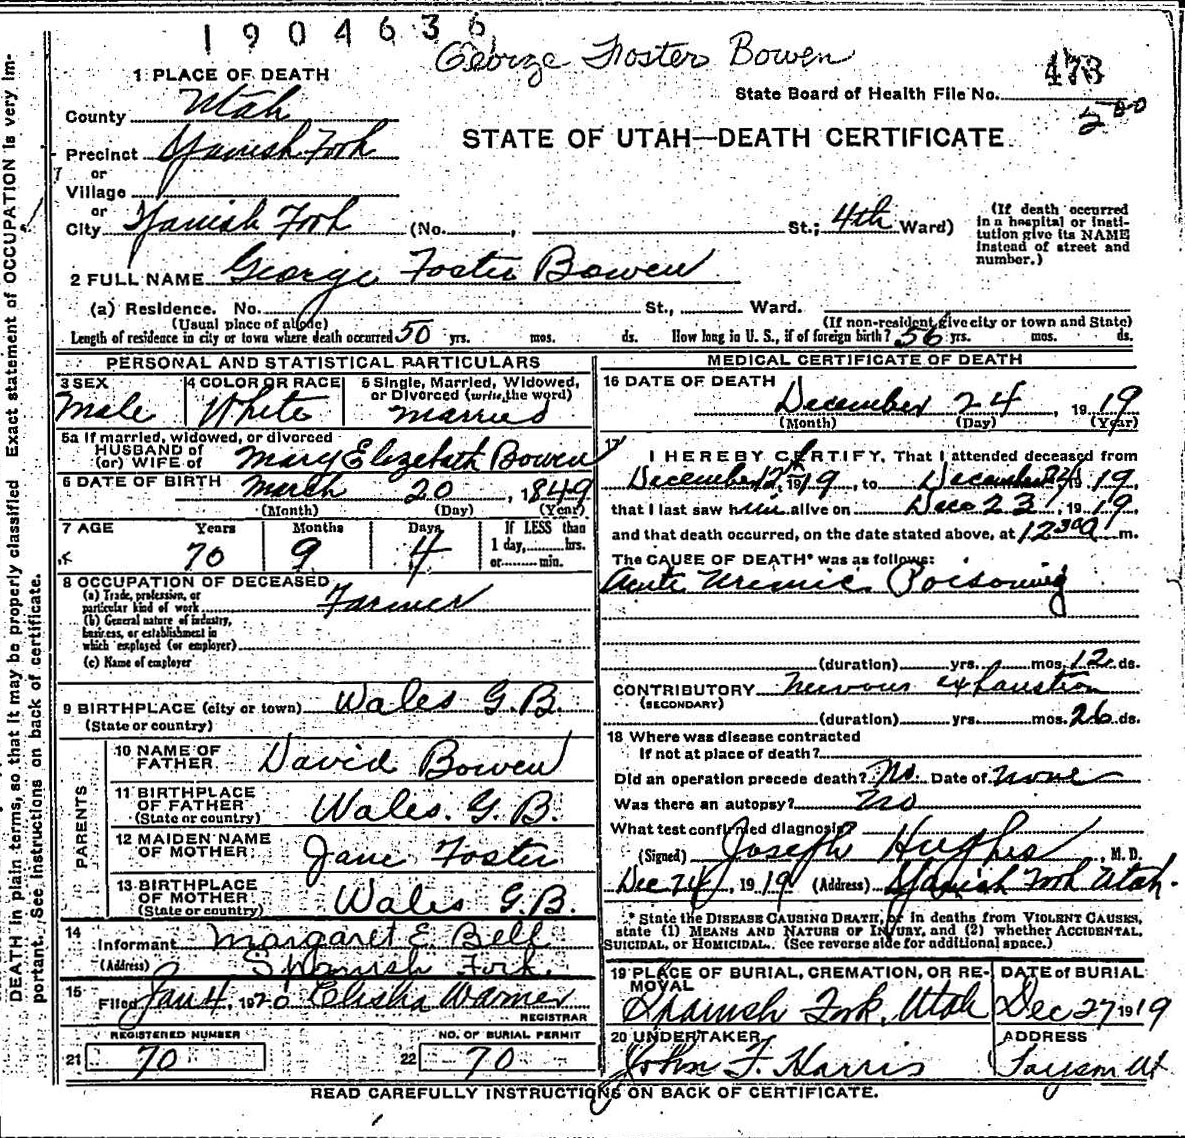 1904636
George Foster Bowen
473
1 PLACE OF DEATH
State Board of Health File No.
200
County Utah
STATE OF UTAH—DEATH CERTIFICATE
Precinct Spanish Fork
or
Village
or
City Spanish Fork (No. , St.; 4th Ward)
(If death occurred in a hospital or insti-
tution give its NAME
instead of street and
number.)
2 FULL NAME George Foster Bowen
(a) Residence. No. St., Ward.
(Usual place of abode) (If non-resident give city or town and State)
Length of residence in city or town where death occurred 50 yrs. mos. ds. How long in U. S., if of foreign birth? 56 yrs. mos. ds.
PERSONAL AND STATISTICAL PARTICULARS
3 SEX
Male
4 COLOR OR RACE
White
5 Single, Married, Widowed,
or Divorced (write the word)
Married
5a If married, widowed, or divorced
HUSBAND of
(or) WIFE of Mary Elizebath Bowen
6 DATE OF BIRTH March 20, 1849
(Month) (Day) (Year)
7 AGE Years Months Days If LESS than
1 day, hrs.
or min.
70 9 4
8 OCCUPATION OF DECEASED
(a) Trade, profession, or
particular kind of work Farmer
(b) General nature of industry,
business, or establishment in
which employed (or employer)
(c) Name of employer
9 BIRTHPLACE (city or town) Wales G.B.
(State or country)
PARENTS
10 NAME OF
FATHER David Bowen
11 BIRTHPLACE
OF FATHER
(State or country) Wales. G.B.
12 MAIDEN NAME
OF MOTHER Jane Foster
13 BIRTHPLACE
OF MOTHER
(State or country) Wales G.B.
14
Informant Margaret E. Belf
(Address) Spanish Fork.
15
Filed Jan 4, 1920 Elisha Warner
REGISTRAR
REGISTERED NUMBER NO. OF BURIAL PERMIT
21 70 22 70
MEDICAL CERTIFICATE OF DEATH
16 DATE OF DEATH
December 24, 1919
(Month) (Day) (Year)
17
I HEREBY CERTIFY, That I attended deceased from
December 12th, 1919, to December 24, 1919,
that I last saw him alive on Dec 23, 1919,
and that death occurred, on the date stated above, at 12 30 a m.
The CAUSE OF DEATH* was as follows:
Acute Uremic Poisoning
(duration) yrs. mos. 12 ds.
CONTRIBUTORY Nervous exhaustion
(SECONDARY)
(duration) yrs. mos. 26 ds.
18 Where was disease contracted
If not at place of death?
Did an operation precede death? No. Date of none
Was there an autopsy? No
What test confirmed diagnosis?
(Signed) Joseph Hughes, M. D.
Dec 24, 1919 (Address) Spanish Fork Utah.
* State the DISEASE CAUSING DEATH, or in deaths from VIOLENT CAUSES,
state (1) MEANS AND NATURE OF INJURY, and (2) whether ACCIDENTAL,
SUICIDAL, or HOMICIDAL. (See reverse side for additional space.)
19 PLACE OF BURIAL, CREMATION, OR RE-
MOVAL
Spanish Fork, Utah
DATE of BURIAL
Dec 27 1919
20 UNDERTAKER
John F. Harris
ADDRESS
Payson Ut
READ CAREFULLY INSTRUCTIONS ON BACK OF CERTIFICATE.
DEATH in plain terms, so that it may be properly classified Exact statement of OCCUPATION is very im-
portant. See instructions on back of certificate.